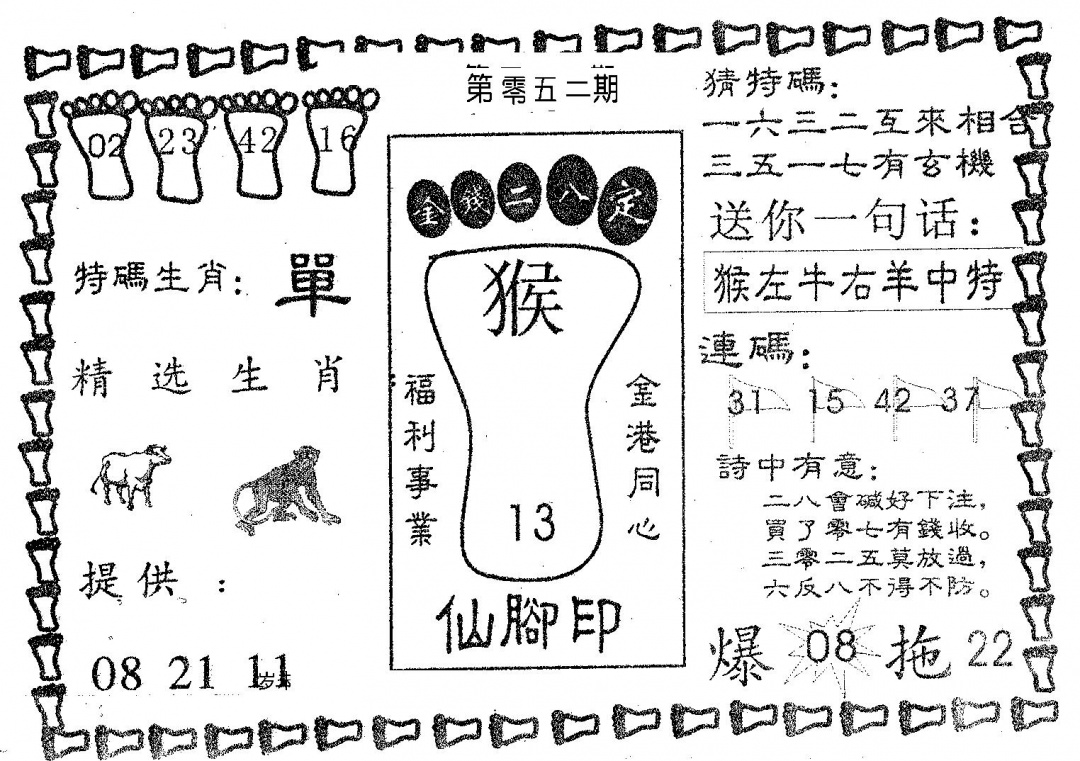 第零五二期
02 23 42 16
特碼生肖：單
精选生肖
提供：
08 21 11
金錢二八定
猴
福利事業
金港同心
13
仙腳印
猜特碼：
一六三二互來相合
三五一七有玄機
送你一句话：
猴左牛右羊中特
連碼：
31 15 42 37
詩中有意：
二八會碱好下注，
買了零七有錢收。
三零二五莫放過，
六反八不得不防。
爆 08 拖 22